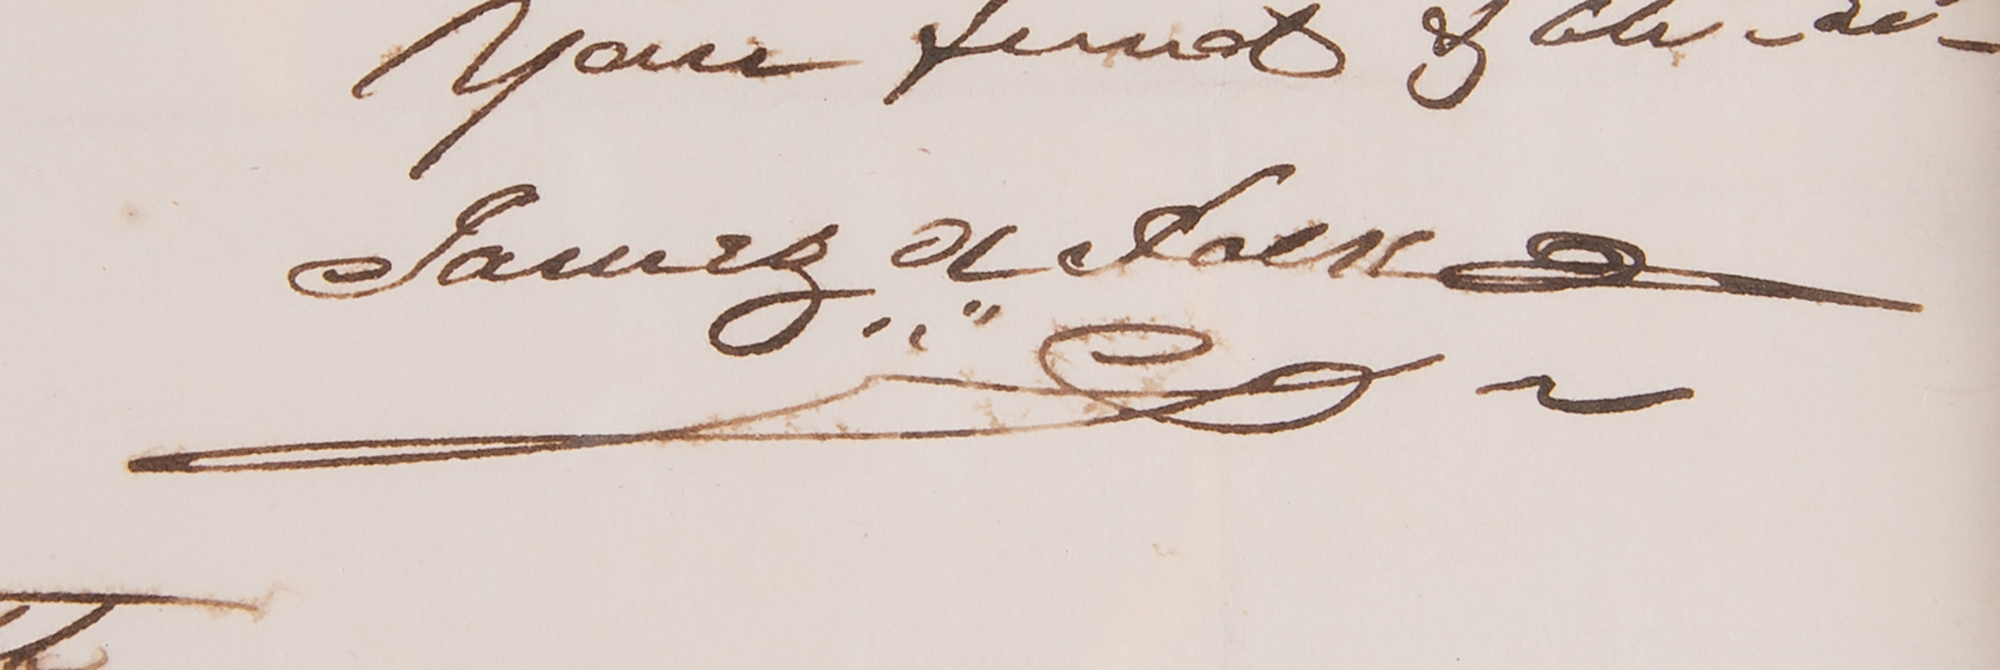 Your friend & Ob. Se
James K Polk